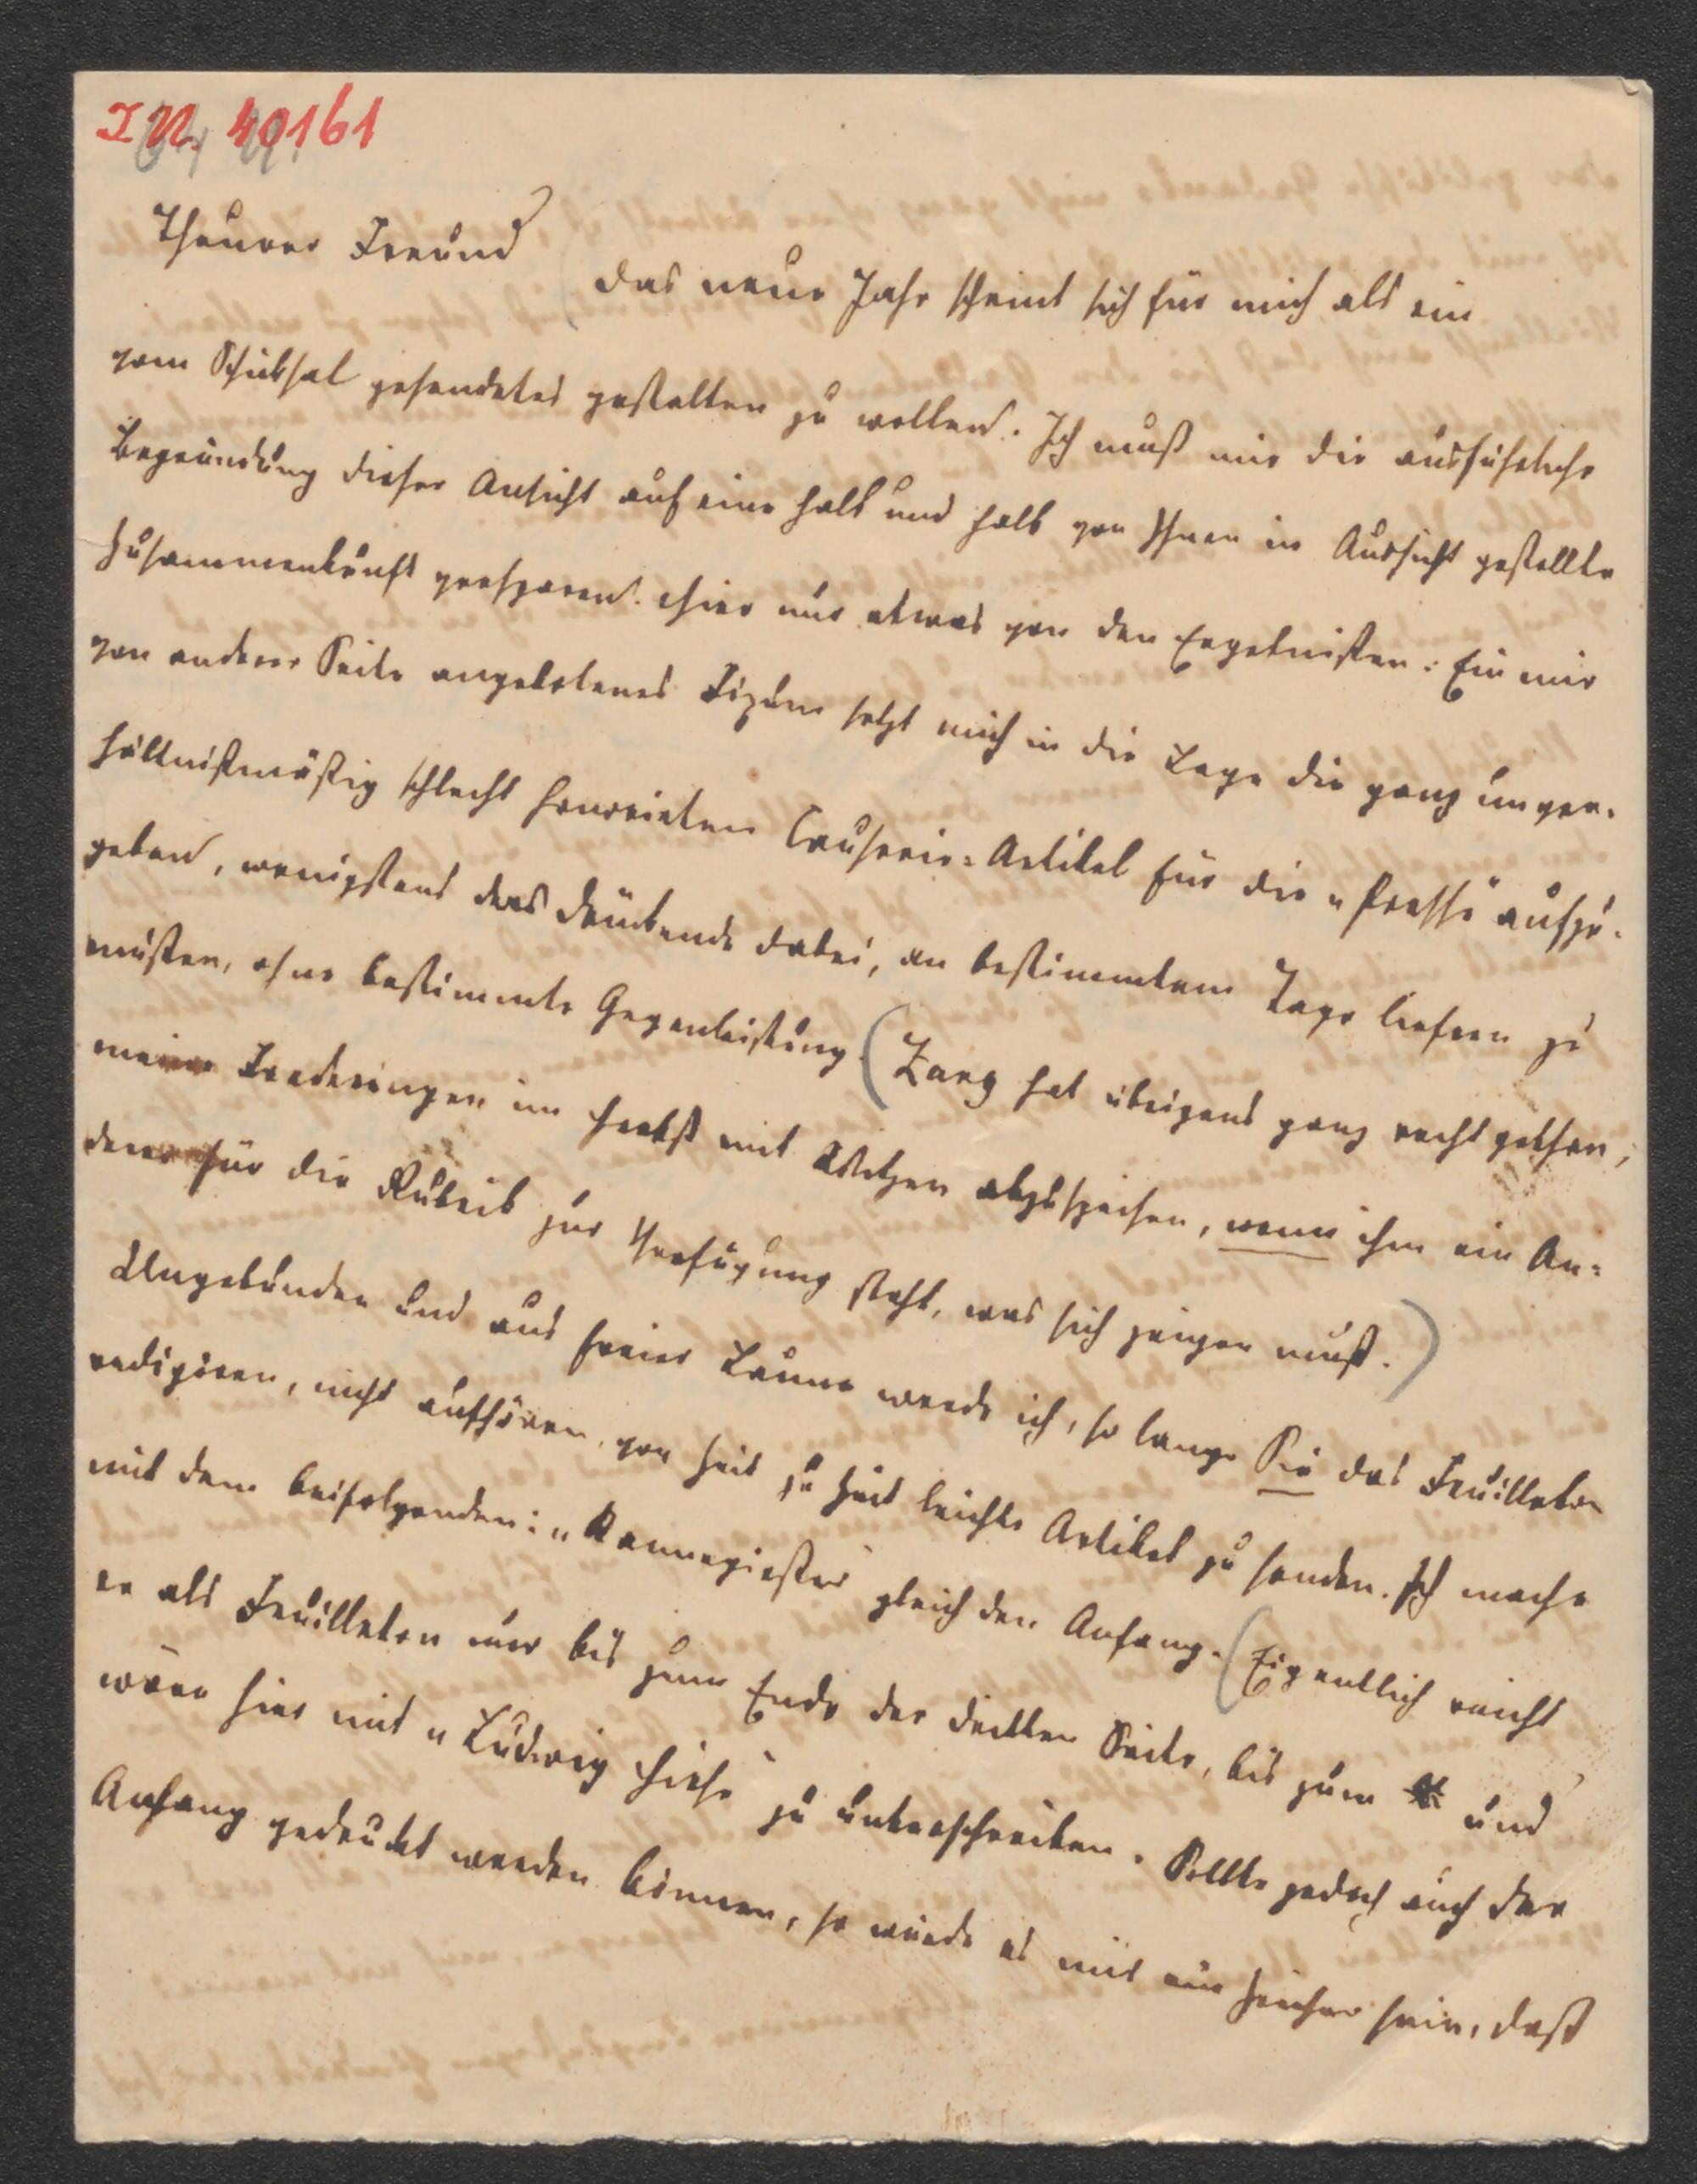 I. N. 40161
Theurer Freund
das neue Jahr scheint sich für mich als ein
vom Schicksal gesendetes gestalten zu wollen. Ich muß mir die ausführliche
Begründung dieser Ansicht auf eine halb und halb von Ihnen in Aussicht gestellte
Zusammenkunft versparen. Hier nur etwas von den Ergebnißen: Ein mir
von anderer Seite angebotenes Fixum setzt mich in die Lage die ganz unver-
hältnißmäßig schlecht honorirten Causerie-Artikel für die „Presse“ aufzu-
geben, wenigstens das Drückende dabei, an bestimmtem Tage liefern zu
müßen, ohne bestimmte Gegenleistung. (Zang hat übrigens ganz recht gethan,
meine Forderungen im Herbst mit Witzen abzuspeisen, wenn ihm ein An-
derer für die Rubrik zur Verfügung steht, was sich zeigen muß.)
Ungebunden und aus freier Laune werde ich, so lange Sie das Feuilleton
redigiren, nicht aufhören, von Zeit zu Zeit leichte Artikel zu senden. Ich mache
mit dem beifolgenden: „Kannegießer“ gleich den Anfang. (Eigentlich reicht
er als Feuilleton nur bis zum Ende der dritten Seite, bis zum und
wäre hier mit „Ludwig zu unterschreiben. Sollte jedoch auch der
Anhang gedruckt werden können, so würde es mir ein sein, daß